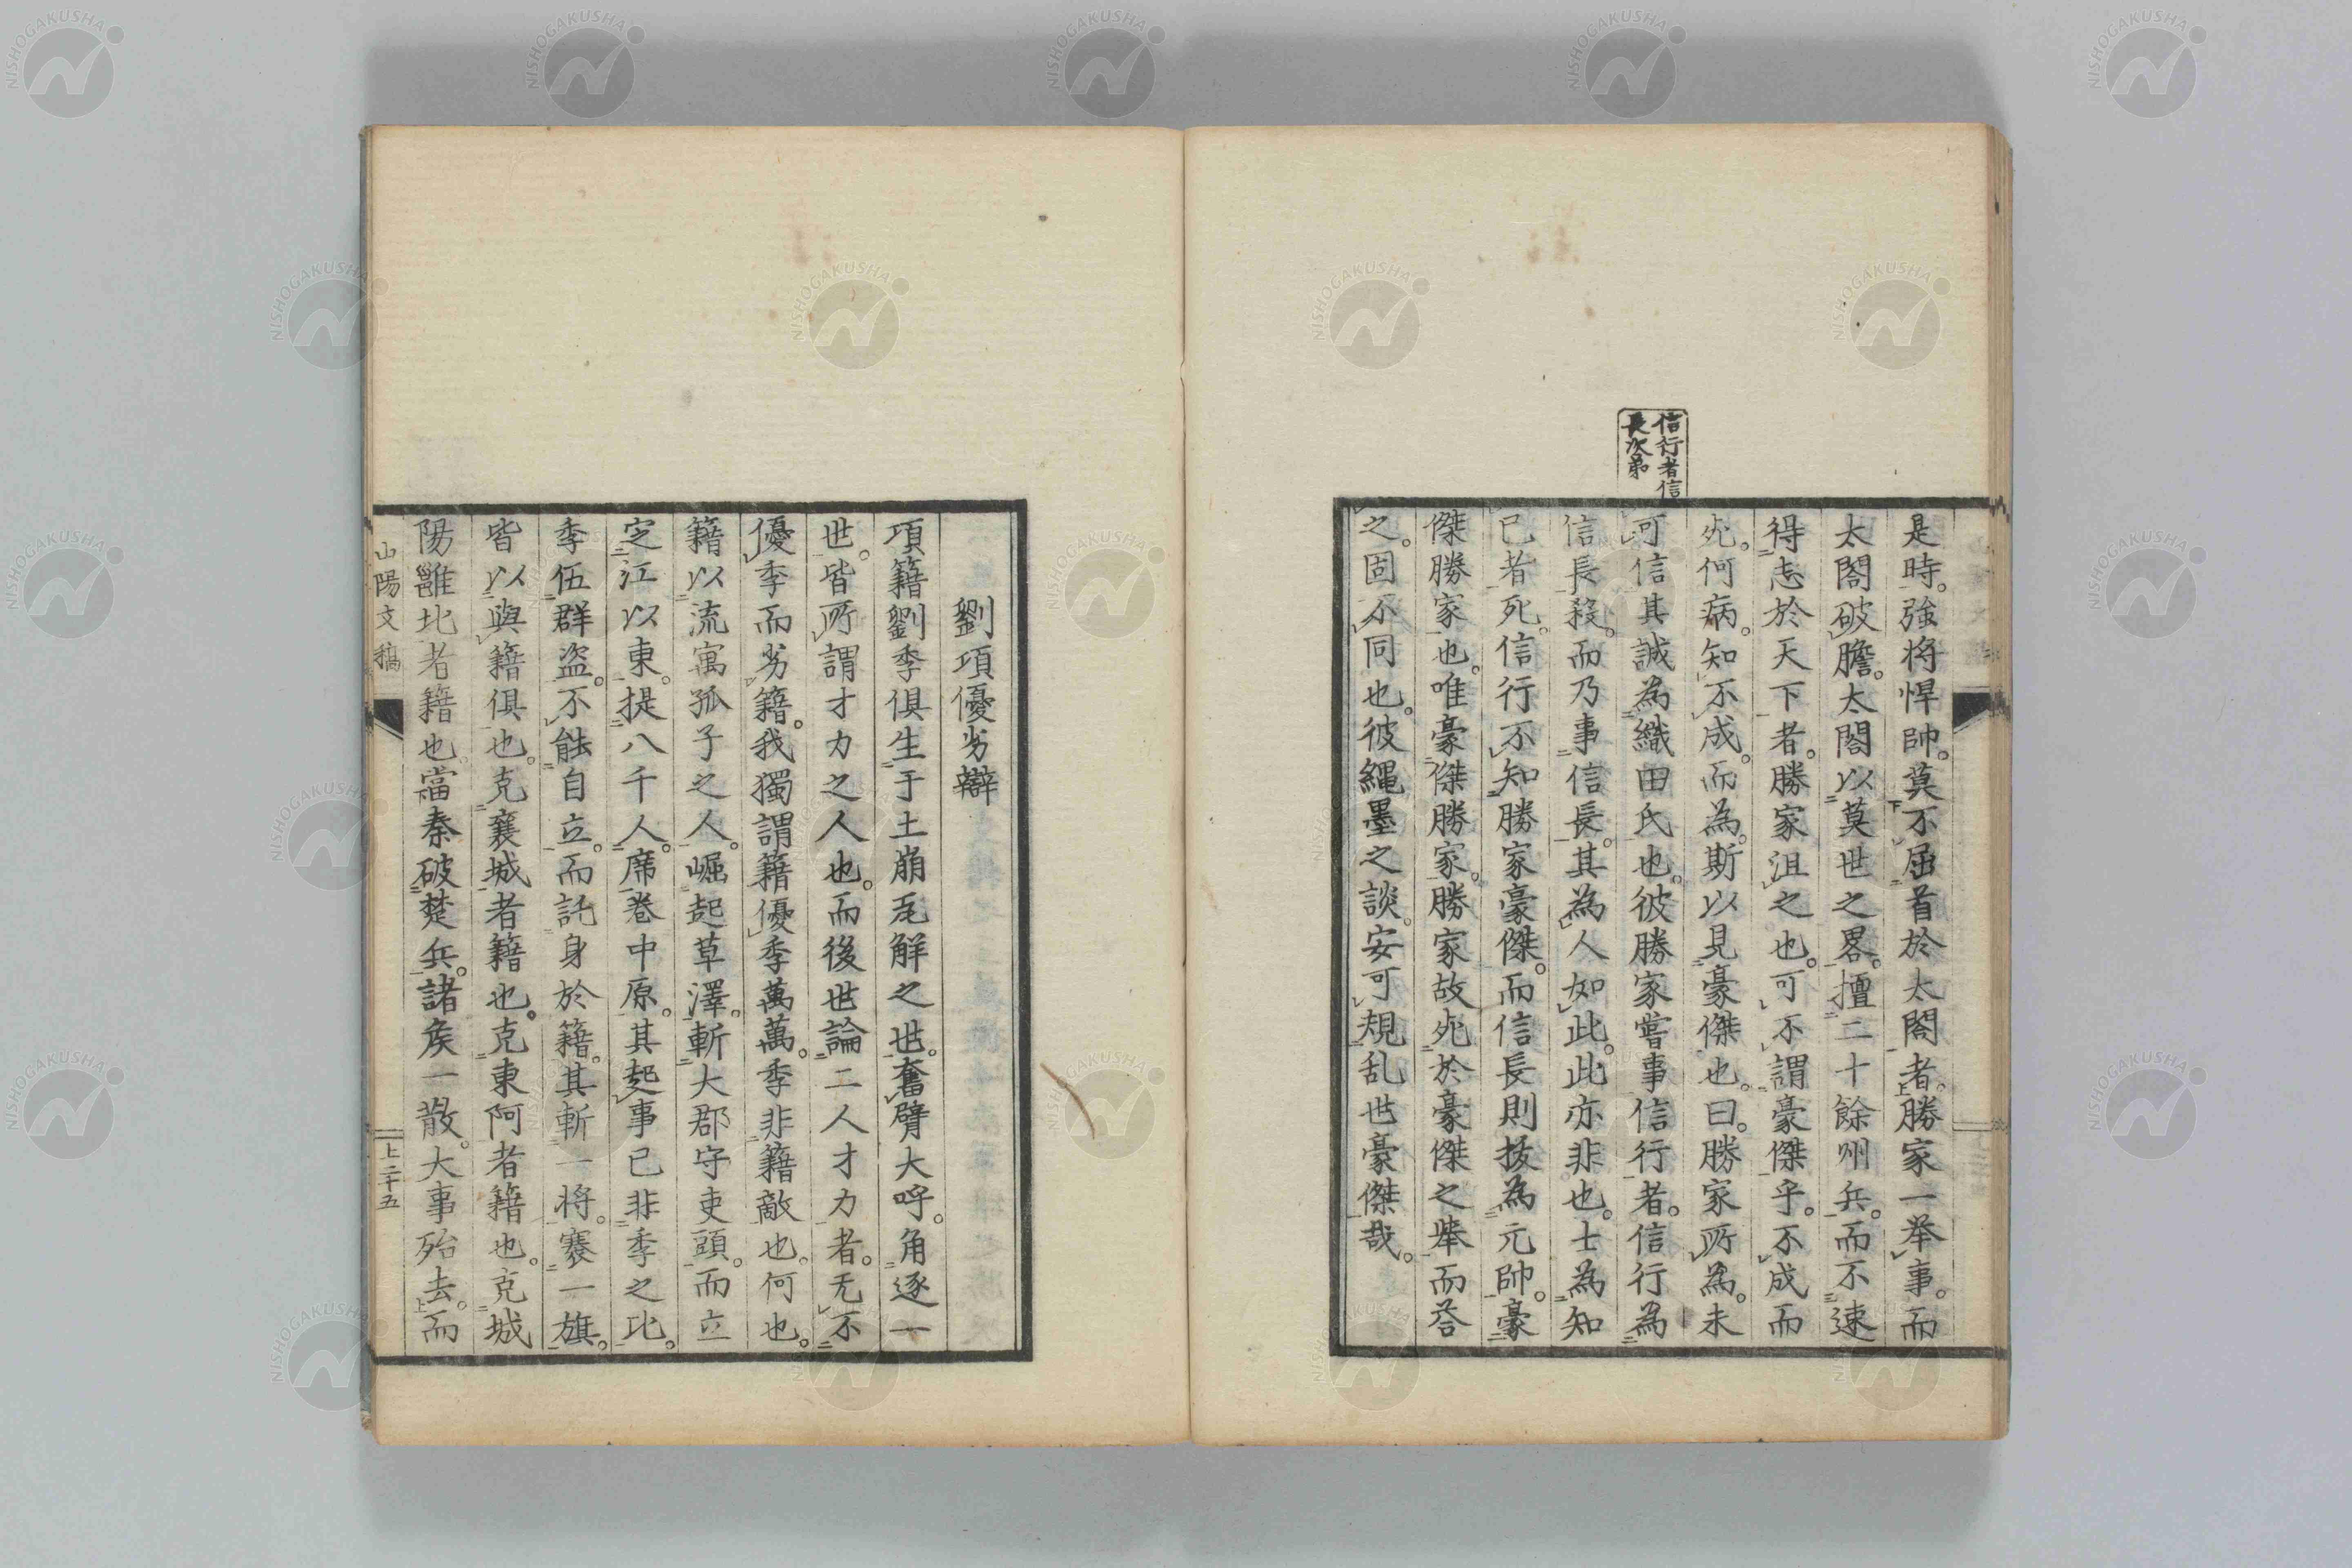 信行者信
長次弟
是時。強将悍帥。莫不屈首於太閤者。勝家一举事。而
太閤破膽。太閤以莫世之畧。擅二十餘州兵。而不速
得志於天下者。勝家沮之也。可不謂豪傑乎。不成而
死。何病。知不成。而為。斯以見豪傑也。曰。勝家所為。未
可信其誠為織田氏也。彼勝家嘗事信行者。信行為
信長殺。而乃事信長。其為人如此。此亦非也。士為知
已者死。信行不知勝家豪傑。而信長則拔為元帥。豪
傑勝家也。唯豪傑勝家。勝家故死於豪傑之挙而荅
之。固不同也。彼繩墨之談。安可規乱世豪傑哉。
劉項優劣辯
項籍劉季俱生于土崩瓦解之世。奮臂大呼。角逐一
世。皆所謂才力之人也。而後世論二人才力者。无不
優季而劣籍。我獨謂籍優季萬萬。季非籍敵也。何也。
籍以流寓孤子之人。崛起草澤。斬大郡守吏頭。而立
定江以東。提八千人。席卷中原。其起事已非季之比。
季伍群盗。不能自立。而託身於籍。其斬一将。搴一旗。
皆以與籍俱也。克襄城者籍也。克東阿者籍也。克城
陽雝北者籍也。當秦破楚兵。諸矦一散。大事殆去。而
山陽文稿
上二十五
NISHOGAKUSHA